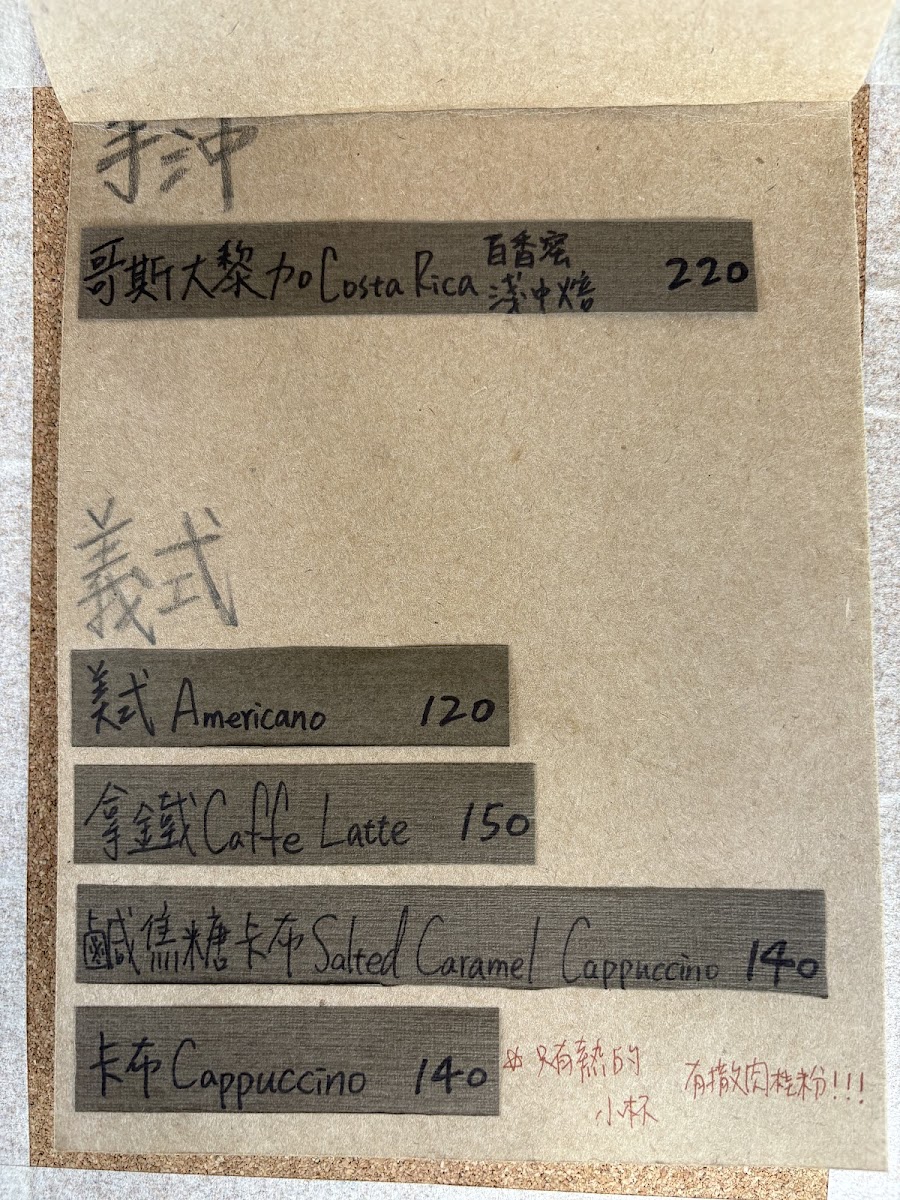 手沖
哥斯大黎加 Costa Rica 百香蜜 淺中焙 220
義式
美式 Americano 120
拿鐵 Caffe Latte 150
鹹焦糖卡布 Salted Caramel Cappuccino 140
卡布 Cappuccino 140 ※只有熱的 有撒肉桂粉!!!
小杯